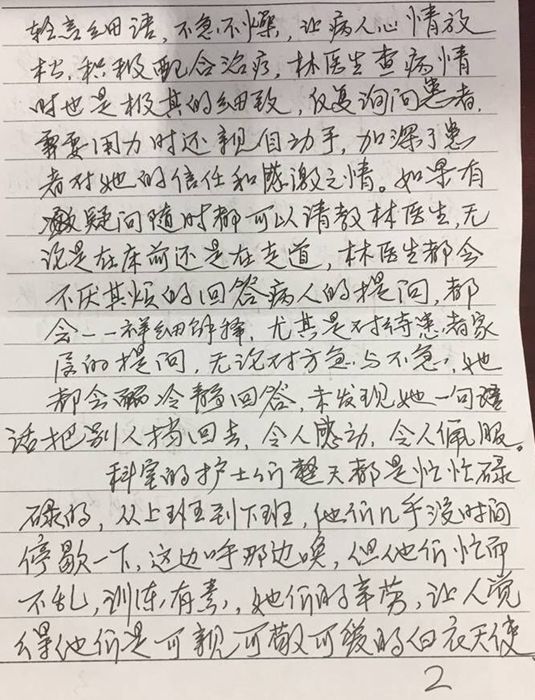 轻言细语，不急不燥，让病人心情放
松，积极配合治疗，林医生查病情
时也是极其的细致，反复询问患者，
需要用力时还亲自动手，加深了患
者对她的信任和感激之情。如果有
疑问随时都可以请教林医生，无
论是在床前还是在走道，林医生都会
不厌其烦的回答病人的提问，都
会一一详细解释，尤其是对待患者家
属的提问，无论对方急与不急，她
都会冷静回答，未发现她一句话
话把别人挡回去，令人感动，令人佩服。
科室的护士们整天都是忙忙碌
碌的，从上班到下班，他们几乎没时间
停歇一下，这边呼那边唤，但他们忙而
不乱，训练有素，她们的辛劳，让人觉
得他们是可亲可敬可爱的白衣天使
2